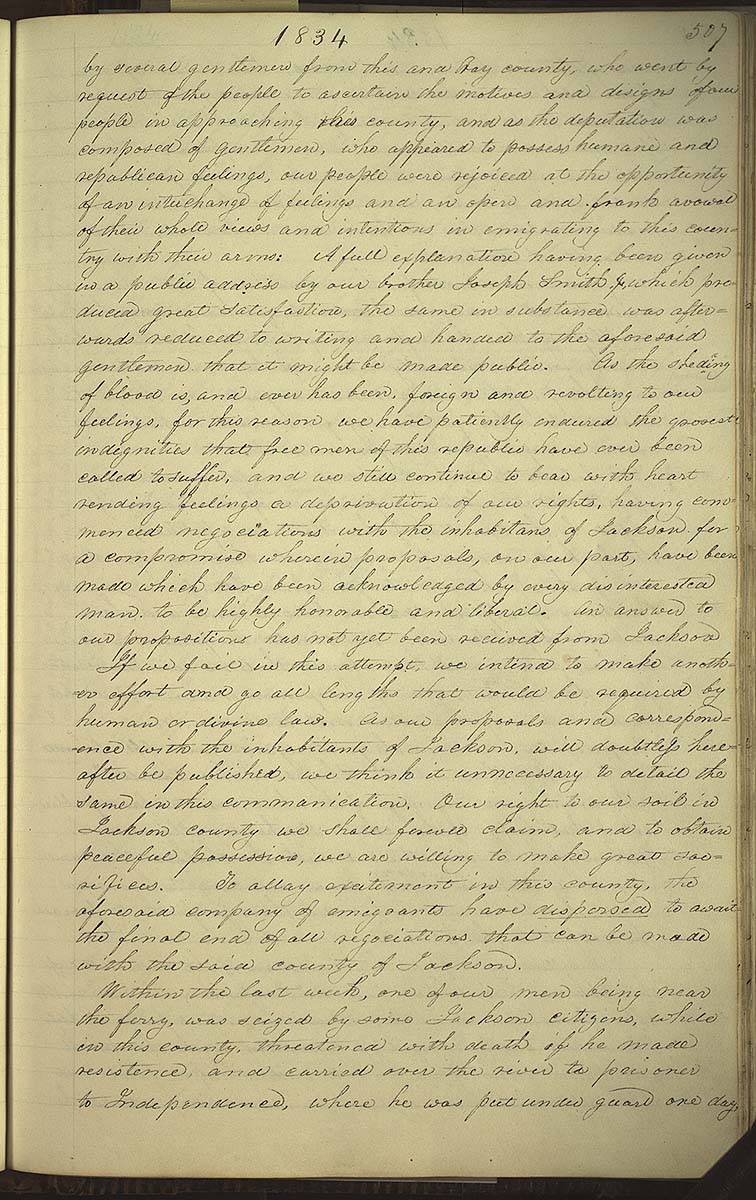 1834
507
by several gentlemen from this and Ray county, who went by
request of the people to ascertain the motives and designs of our
people in approaching this county, and as the deputation was
composed of gentlemen, who appeared to possess humane and
republican feelings, our people were rejoiced at the opportunity
of an interchange of feelings and an open and frank avowal
of their whole views and intentions in emigrating to this coun=
try with their arms: A full explanation having been given
in a public address by our brother Joseph Smith Jr, which pro=
duced great satisfaction, the same in substance was after=
wards reduced to writing and handed to the aforesaid
gentlemen that it might be made public. As the sheding
of blood is, and ever has been, foreign and revolting to our
feelings, for this reason we have patiently endured the grossest
indegnities that free men of this republic have ever been
called to suffer, and we still continue to bear with heart
rending feelings a deprivation of our rights, having com=
menced negociations with the inhabitans of Jackson for
a compromise wherein proposals, on our part, have been
made which have been acknowledged by every disinterested
man to be highly honorable and liberal. An answer to
our propositions has not yet been received from Jackson
If we fail in this attempt, we intend to make anoth=
=er effort and go all lengths that would be required by
human or divine law. As our proposals and correspond=
=ence with the inhabitants of Jackson, will doubtless here=
after be published, we think it unnecessary to detail the
same in this communication. Our right to our soil in
Jackson county we shall forever claim, and to obtain
peaceful possession, we are willing to make great sac=
rifices. To allay excitement in this county, the
aforesaid company of emigrants have dispersed to await
the final end of all negociations that can be made
with the said county of Jackson.
Within the last week, one of our men being near
the ferry, was seized by some Jackson citizens, while
in this county, threatened with death if he made
resistence, and carried over the river to prisoner
to Independence, where he was put under guard one day,